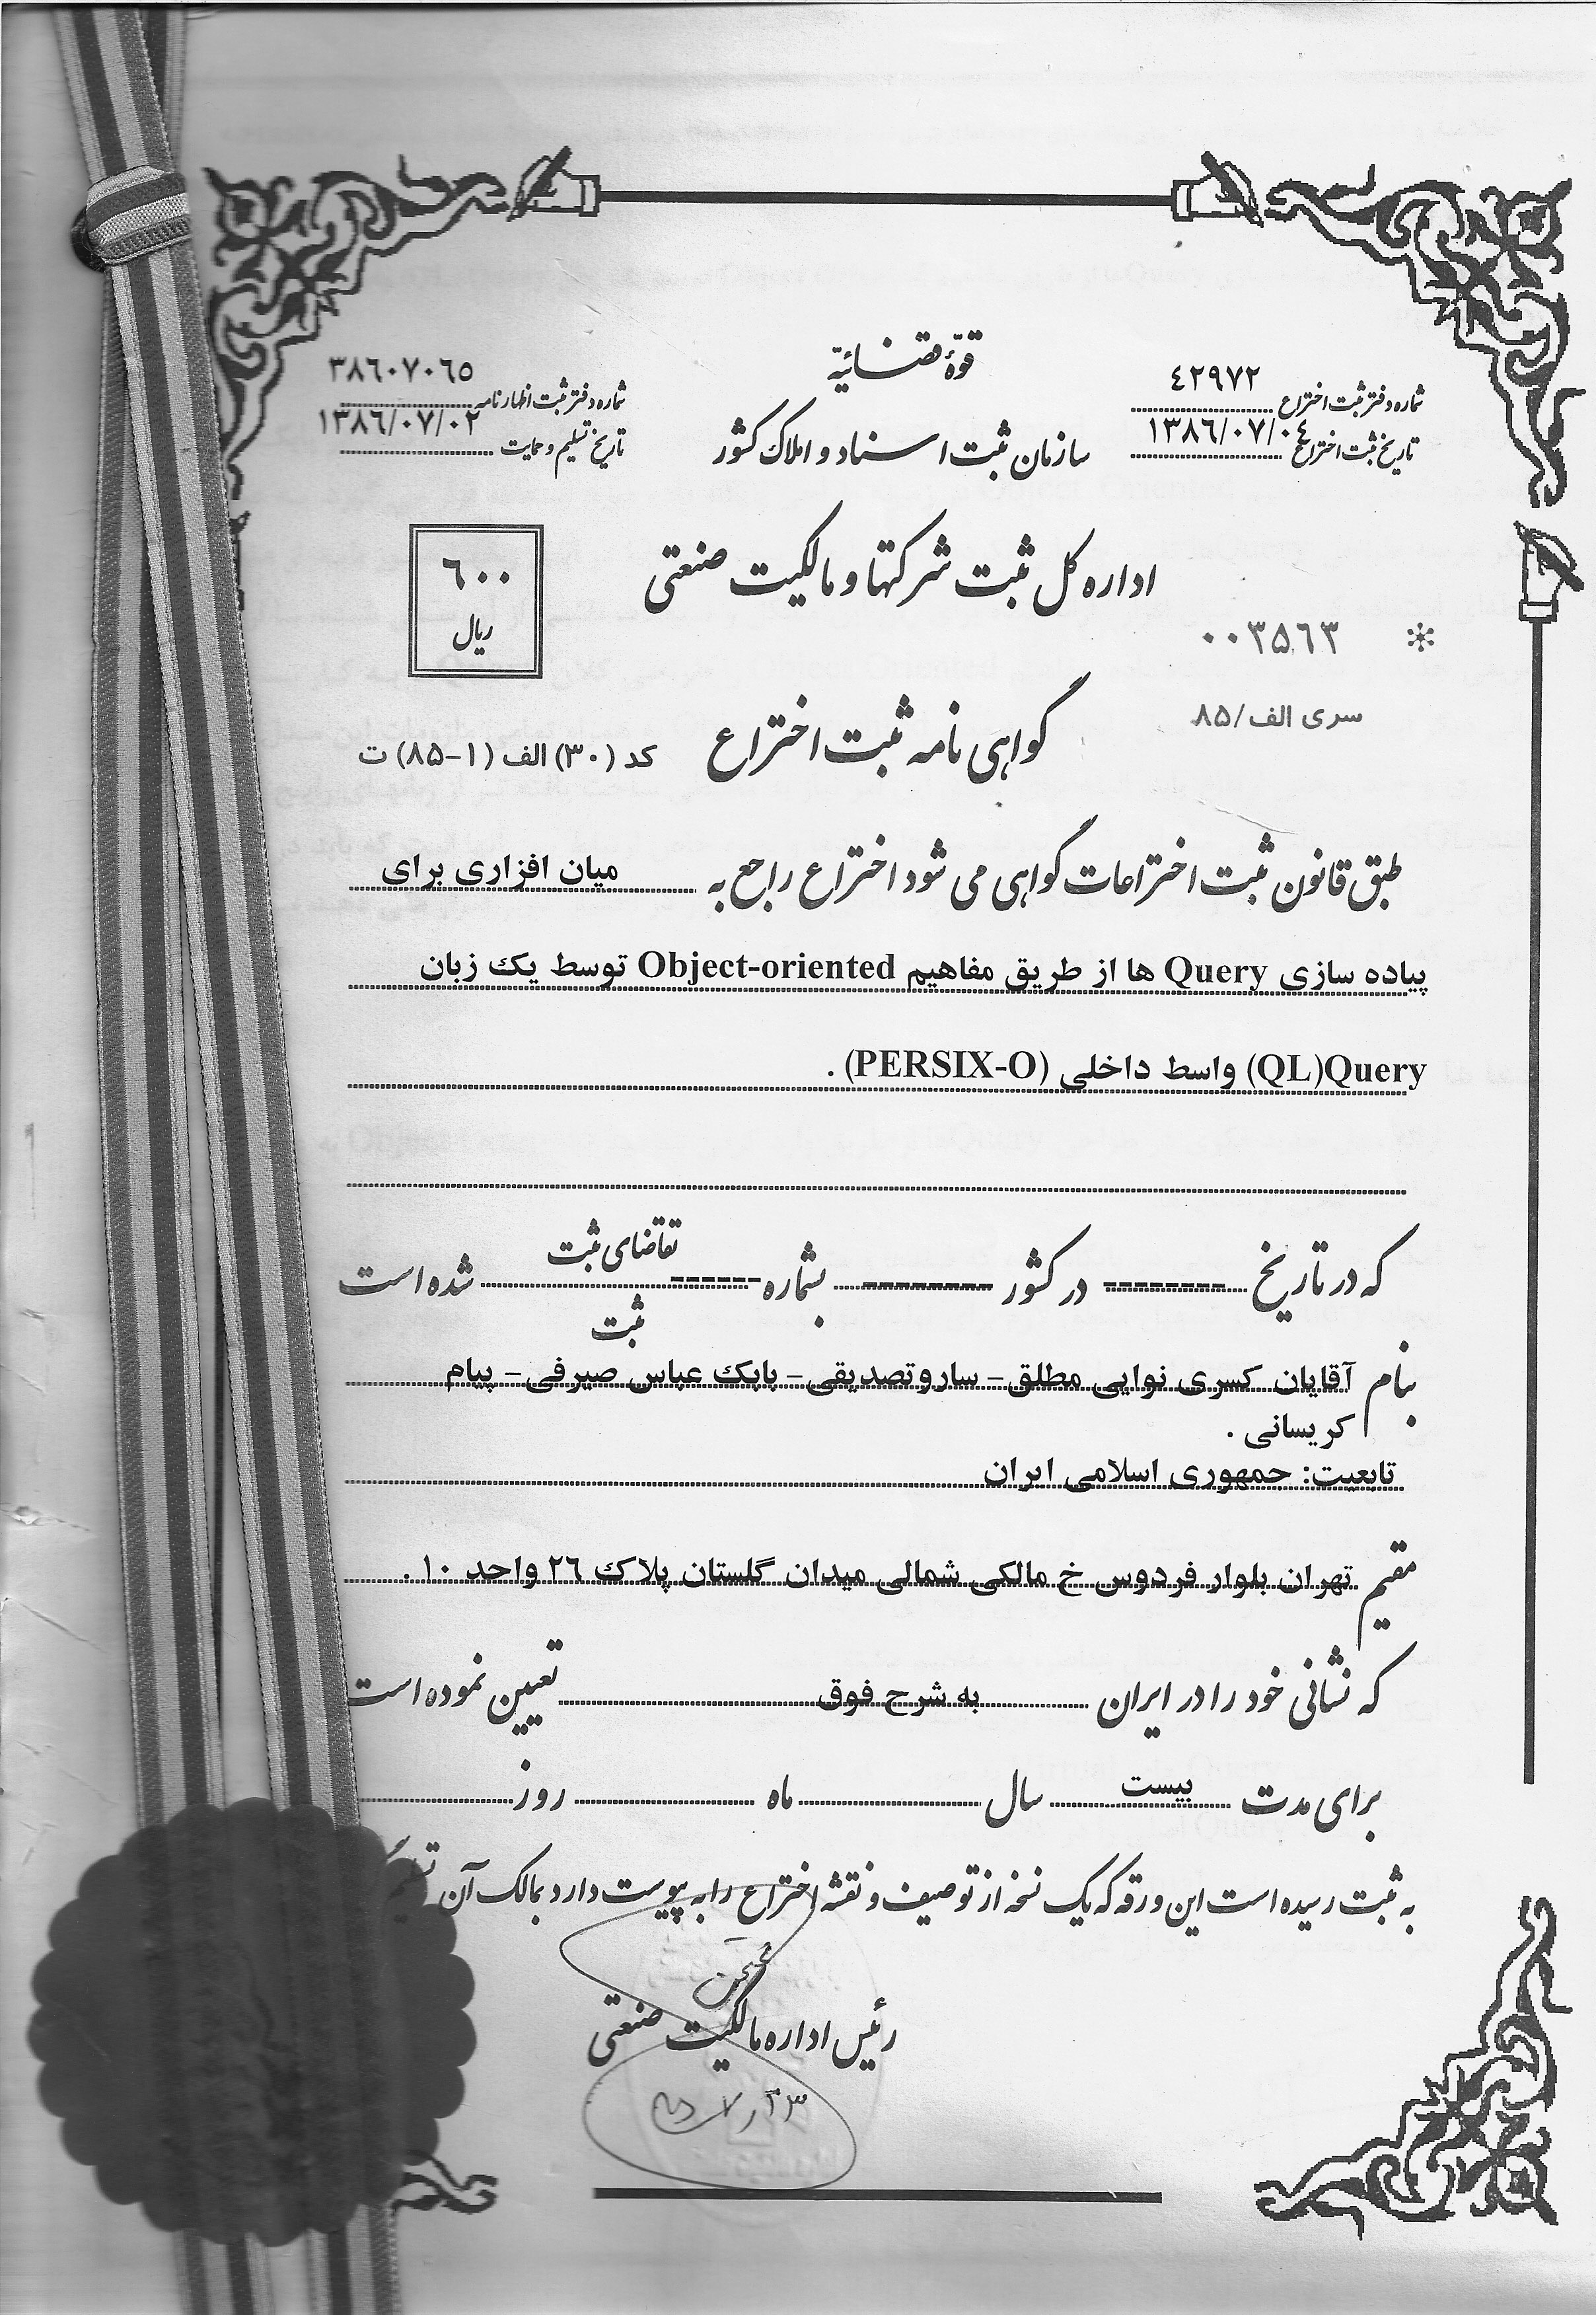 قوّهٔ قضائیّه
سازمان ثبت اسناد و املاک کشور
شماره دفتر ثبت اختراع ٤٢٩٧٢
تاریخ ثبت اختراع ١٣٨٦/٠٧/٠٤
شماره دفتر ثبت اظهارنامه ٣٨٦٠٧٠٦٥
تاریخ تسلیم و حمایت ١٣٨٦/٠٧/٠٢
اداره کل ثبت شرکتها و مالکیت صنعتی
٦٠٠
ریال
* ٠٠٣٥٦٣
سری الف/٨۵
گواهی نامه ثبت اختراع
کد (٣٠) الف (١-٨۵) ت
طبق قانون ثبت اختراعات گواهی می شود اختراع راجع به میان افزاری برای
پیاده سازی Query ها از طریق مفاهیم Object-oriented توسط یک زبان
Query(QL) واسط داخلی (PERSIX-O) .
که در تاریخ -------- در کشور -------- بشماره ------ تقاضای ثبت شده است
ثبت
بنام آقایان کسری نوایی مطلق- ساروتصدیقی- بابک عباس صیرفی- پیام
کریسانی .
تابعیت: جمهوری اسلامی ایران
مقیم تهران بلوار فردوس خ مالکی شمالی میدان گلستان پلاک ٢٦ واحد ١٠ .
که نشانی خود را در ایران به شرح فوق تعیین نموده است
برای مدت بیست سال ماه روز
به ثبت رسیده است این ورقه که یک نسخه از توصیف و نقشه اختراع را به پیوست دارد بمالک آن
رئیس اداره مالکیت صنعتی